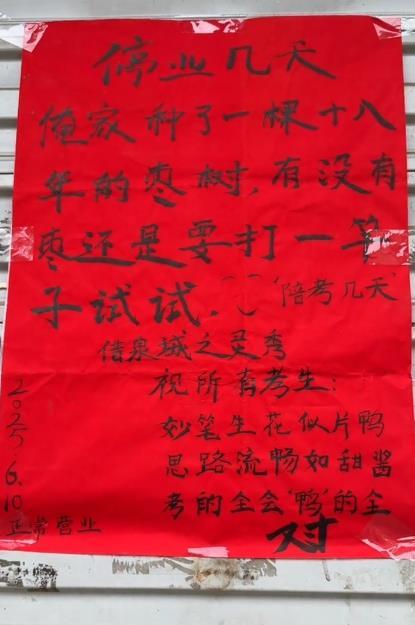 停业几天
俺家种了一棵十八
年的枣树,有没有
枣还是要打一竿
子试试.
陪考几天
借泉城之灵秀
祝所有考生:
妙笔生花似片鸭
思路流畅如甜酱
考的全会'鸭'的全
对
2025.6.10
正常营业